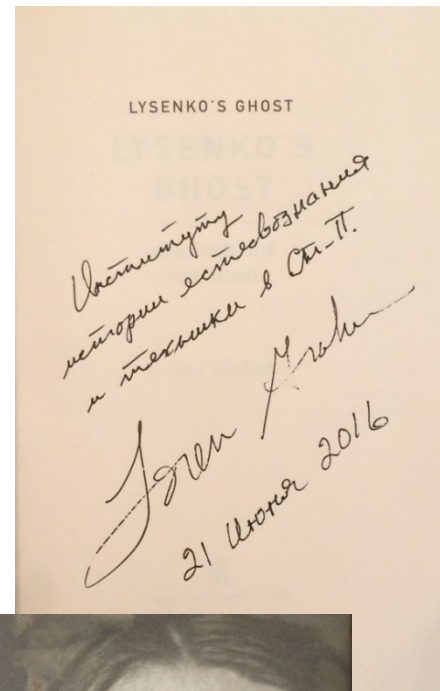 LYSENKO'S GHOST
LYSENKO'S
GHOST
Институту
истории естествознания
и техники в Ст-П.
Loren Graham
21 Июня 2016